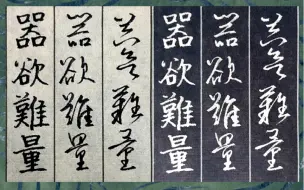 器欲難量
器欲難量
器欲難量
器欲難量
器欲難量
器欲難量